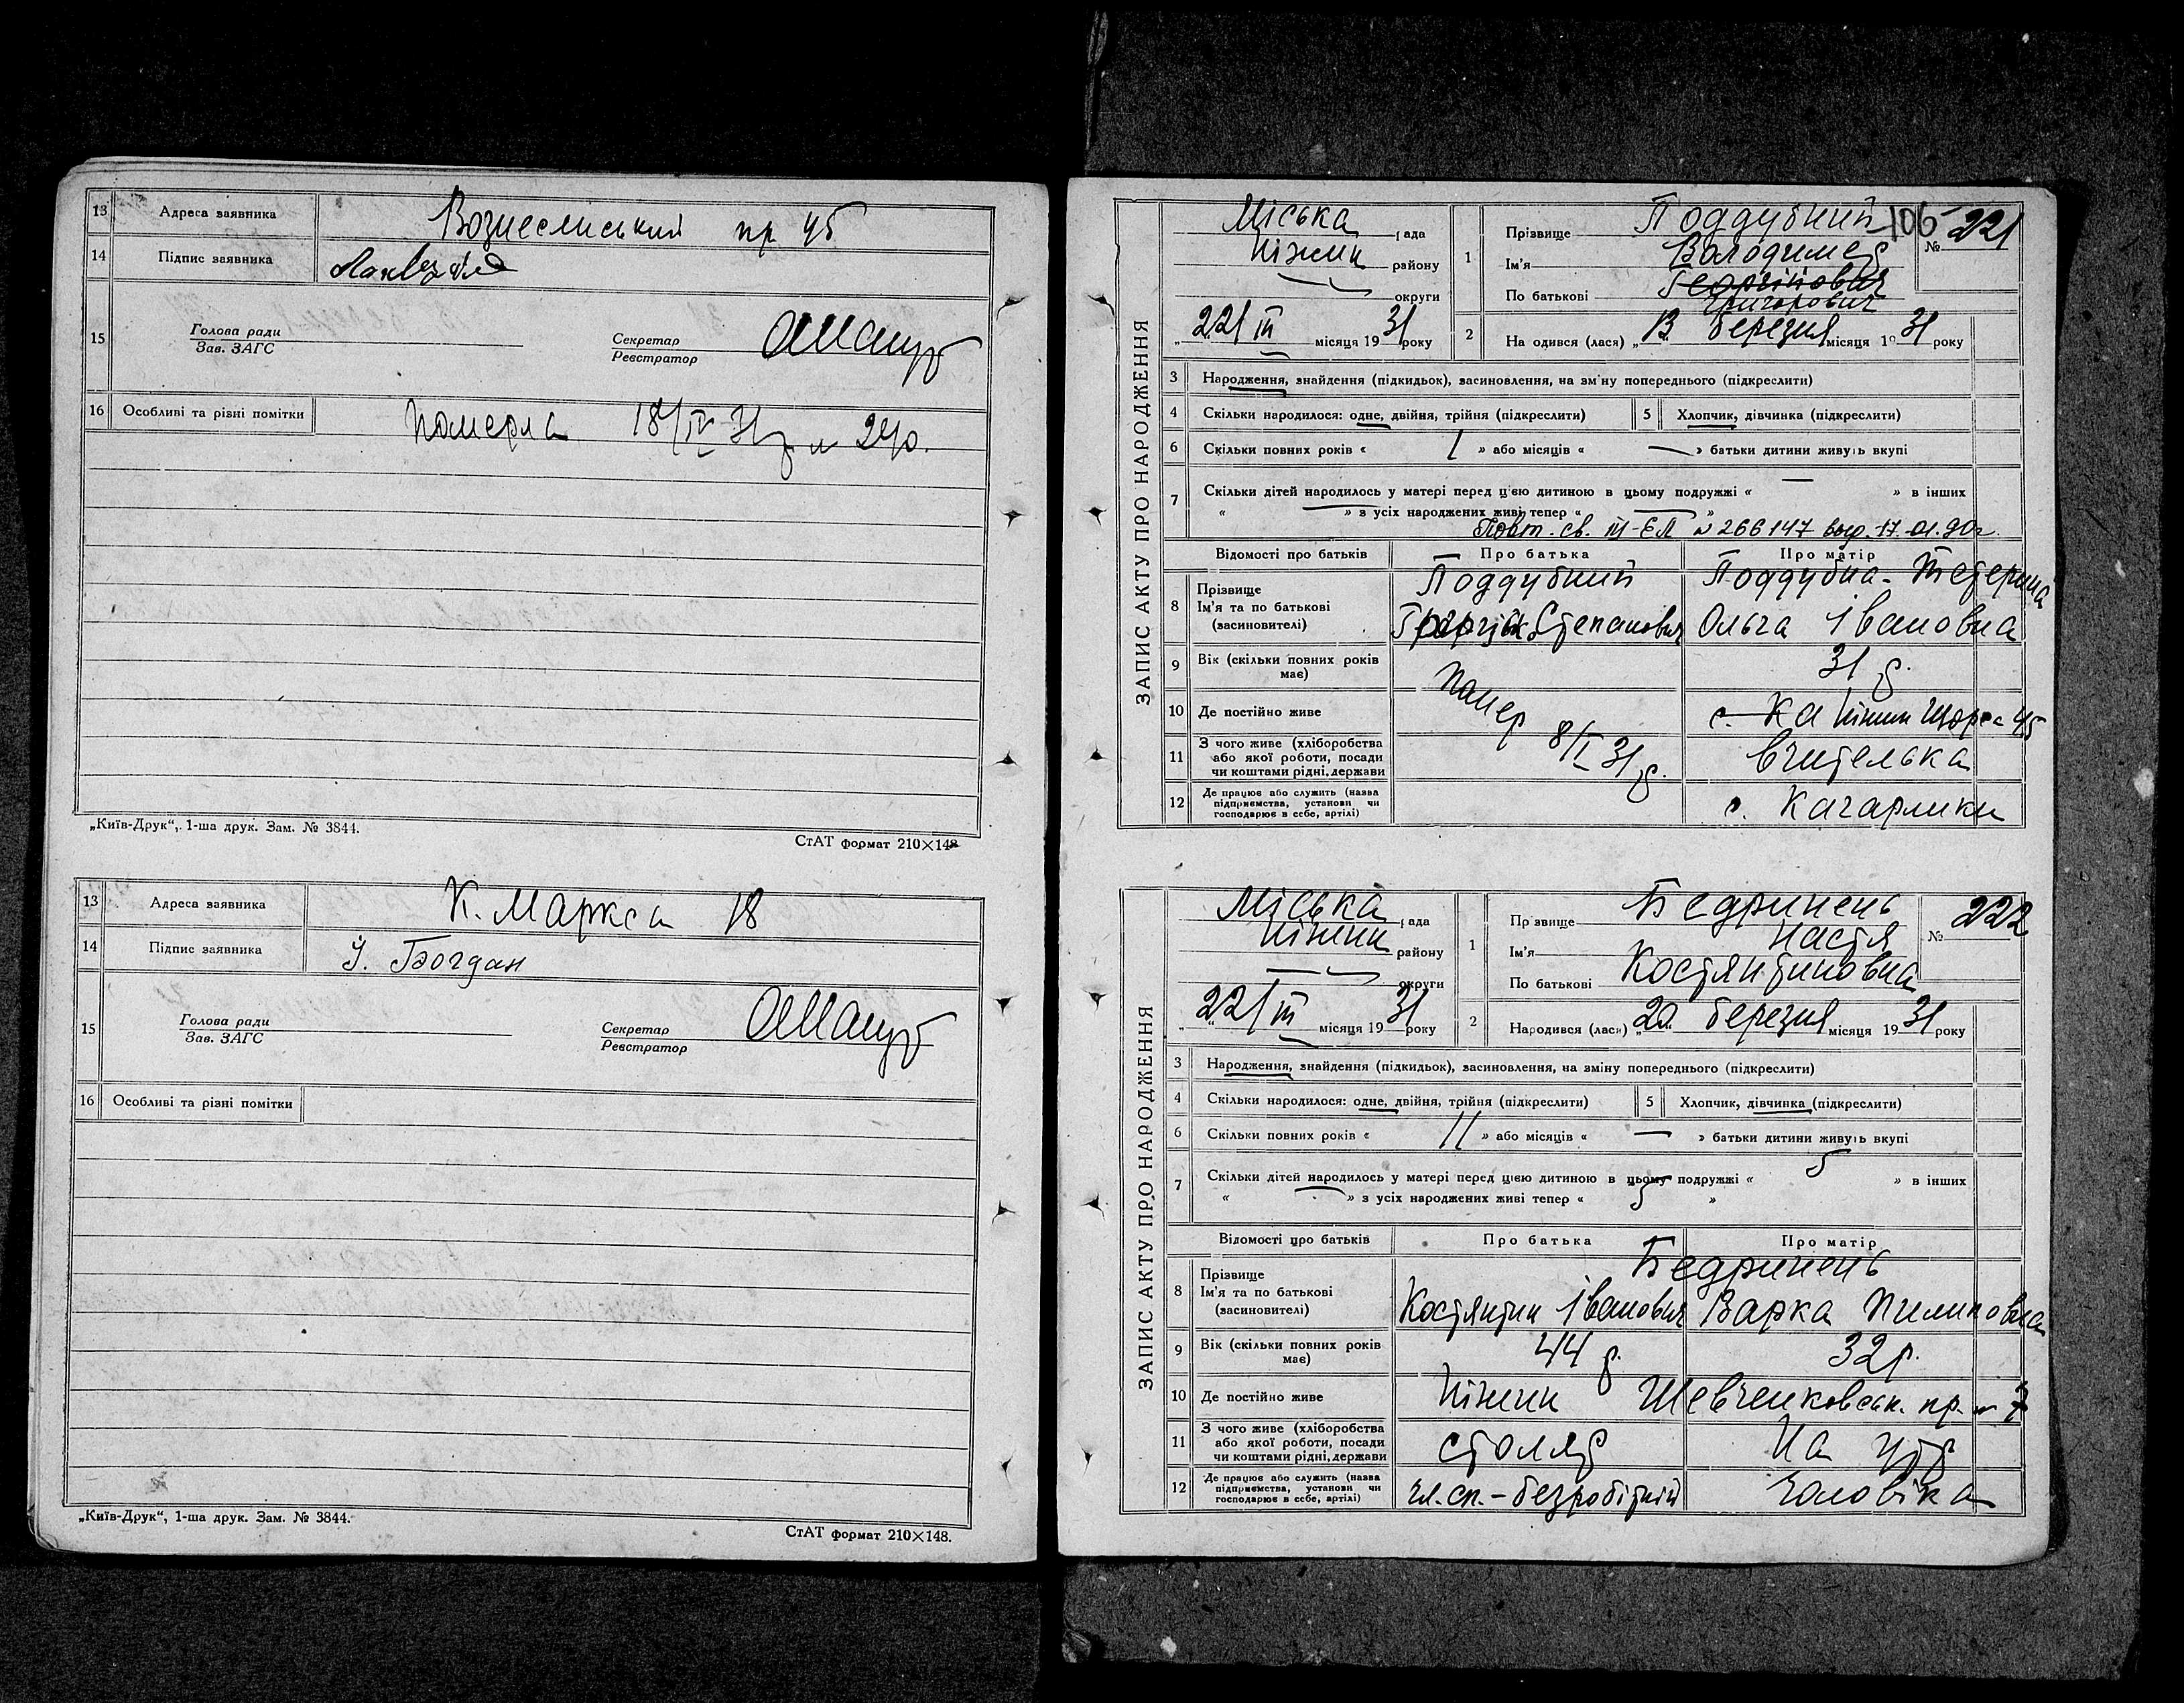 13 Адреса заявника Вознесенський пр 45
14 Підпис заявника
15 Голова ради
Зав. ЗАГС
Секретар
Реєстратор
16 Особливі та різні помітки Померла 18/IV 31 р № 240.
„Київ-Друк“, 1-ша друк. Зам. № 3844.
СтАТ формат 210×148
13 Адреса заявника К. Маркса 18
14 Підпис заявника Й. Богдан
15 Голова ради
Зав. ЗАГС
Секретар
Реєстратор
16 Особливі та різні помітки
„Київ-Друк“, 1-ша друк. Зам. № 3844.
СтАТ формат 210×148.
ЗАПИС АКТУ ПРО НАРОДЖЕННЯ
Міська рада
Ніжин району
— округи
„22/III місяця 1931 року
106
№ 221
1 Прізвище Поддубний
Ім'я Володимер
По батькові Георгійович
Григорович
2 На одився (лася) „13 березня місяця 1931 року
3 Народження, знайдення (підкидьок), засиновлення, на зміну попереднього (підкреслити)
4 Скільки народилося: одне, двійня, трійня (підкреслити) 5 Хлопчик, дівчинка (підкреслити)
6 Скільки повних років « 1 » або місяців « — » батьки дитини живуть вкупі
7 Скільки дітей народилось у матері перед цією дитиною в цьому подружжі « — » в інших
« — » з усіх народжених живі тепер « — »
Повт. св. III-ЄЛ № 266147 выд. 17.01.90г.
Відомості про батьків Про батька Про матір
8 Прізвище
Ім'я та по батькові
(засиновителі)
Поддубний
Степанович
Поддубна-Тетерина
Ольга Івановна
9 Вік (скільки повних років має) 31 р.
10 Де постійно живе
помер 8/I 31 р.
с. Ка Ніжин Щорса 45
11 З чого живе (хліборобства
або якої роботи, посади
чи коштами рідні, держави
вчителька
12 Де працює або служить (назва
підприємства, установи чи
господарює в себе, артілі)
с. Кагарлики
ЗАПИС АКТУ ПРО НАРОДЖЕННЯ
Міська рада
Ніжин району
— округи
„22/III місяця 1931 року
№ 222
1 Прізвище Бедринень
Ім'я Настя
По батькові Костянтиновна
2 Народився (лася) „20 березня місяця 1931 року
3 Народження, знайдення (підкидьок), засиновлення, на зміну попереднього (підкреслити)
4 Скільки народилося: одне, двійня, трійня (підкреслити) 5 Хлопчик, дівчинка (підкреслити)
6 Скільки повних років « 11 » або місяців « — » батьки дитини живуть вкупі
7 Скільки дітей народилось у матері перед цією дитиною в цьому подружжі « 5 » в інших
« — » з усіх народжених живі тепер « 5 »
Відомості про батьків Про батька Про матір
8 Прізвище
Ім'я та по батькові
(засиновителі)
Бедринень
Костянтин Іванович Варка Пилиповна
9 Вік (скільки повних років має) 44 р. 32 р.
10 Де постійно живе Ніжин Шевченковськ. пр. № 7
11 З чого живе (хліборобства
або якої роботи, посади
чи коштами рідні, держави
столяр На утр
12 Де працює або служить (назва
підприємства, установи чи
господарює в себе, артілі)
чл. сп. - безробітній чоловіка